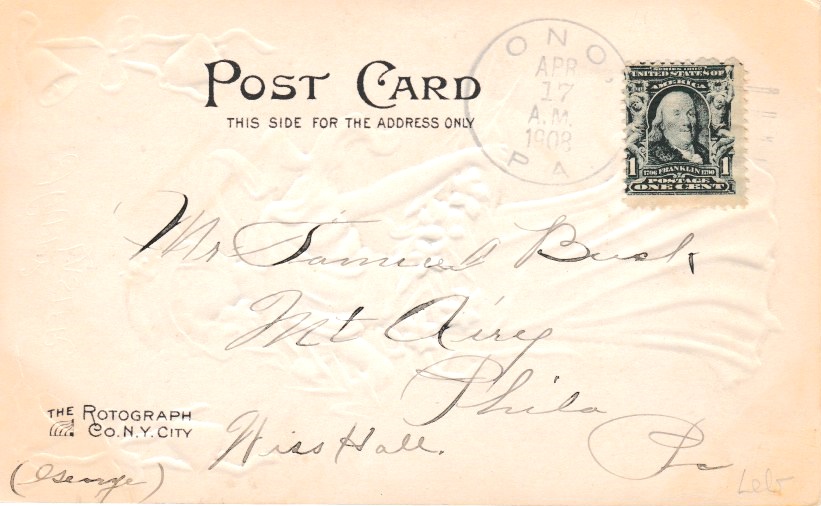 POST CARD
THIS SIDE FOR THE ADDRESS ONLY
ONO,
APR
17
A.M.
1908
PA
SERIES 1902
UNITED STATES OF
AMERICA
1 1706 FRANKLIN 1790 1
POSTAGE
ONE CENT
Mr Samuel Busk
Mt Airy
Phila
Wiss Hall. Pa
THE ROTOGRAPH
CO. N.Y. CITY
(George)
Leb